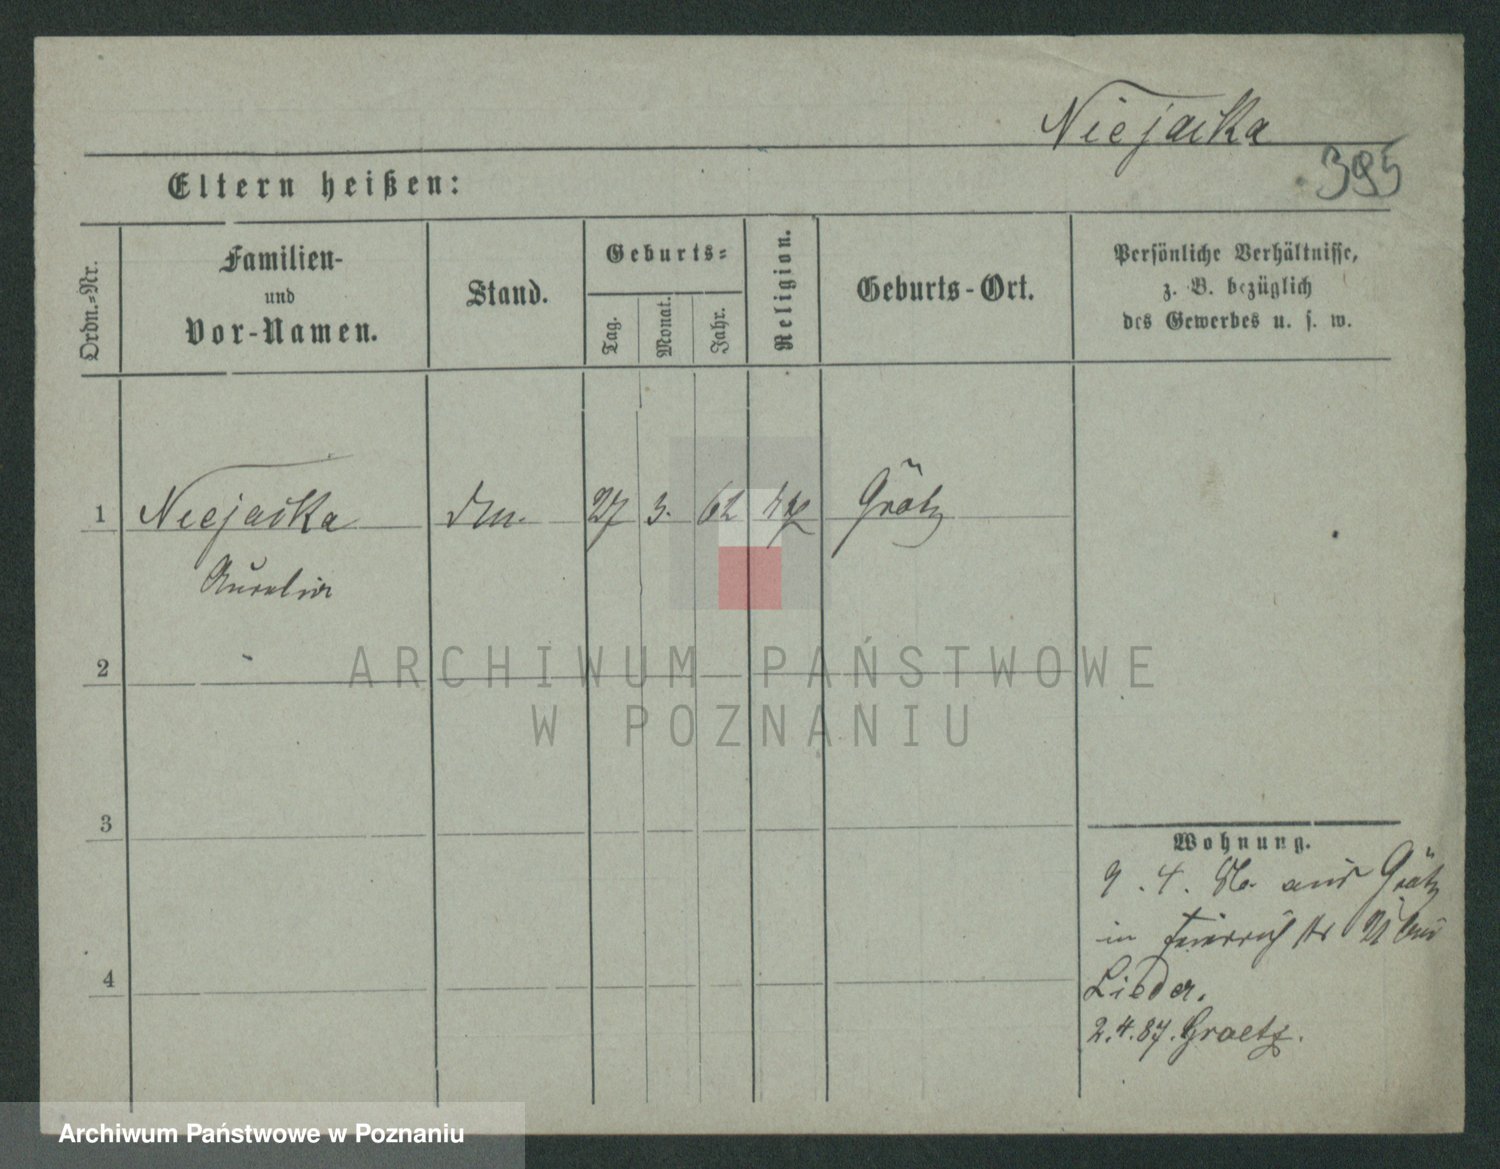 Niejacka
395
Eltern heißen:
Ordn.=Nr.
Familien-
und
Vor-Namen.
Stand.
Geburts=
Tag.
Monat.
Jahr.
Religion.
Geburts-Ort.
Persönliche Verhältnisse,
z. B. bezüglich
des Gewerbes u. s. w.
1 Niejacka 27 3. 62 Grätz
Aurelia
2
ARCHIWUM PAŃSTWOWE
W POZNANIU
3
4
Wohnung.
9. 4. 86. aus Grätz
in
Lieder.
2.4.87. Graetz.
Archiwum Państwowe w Poznaniu